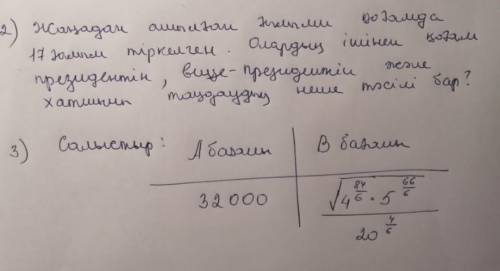 2) Жаңадан ашылған жылпы қоғамда
17 адам тіркелген. Олардың ішінен қоғам
президентін, вице-президентін және
хатшыны таңдаудың неше тәсілі бар?
3) Салыстыр:
А бағаны | В бағаны
32 000 | √(4^(84/6) · 5^(66/6)) / 20^(4/6)